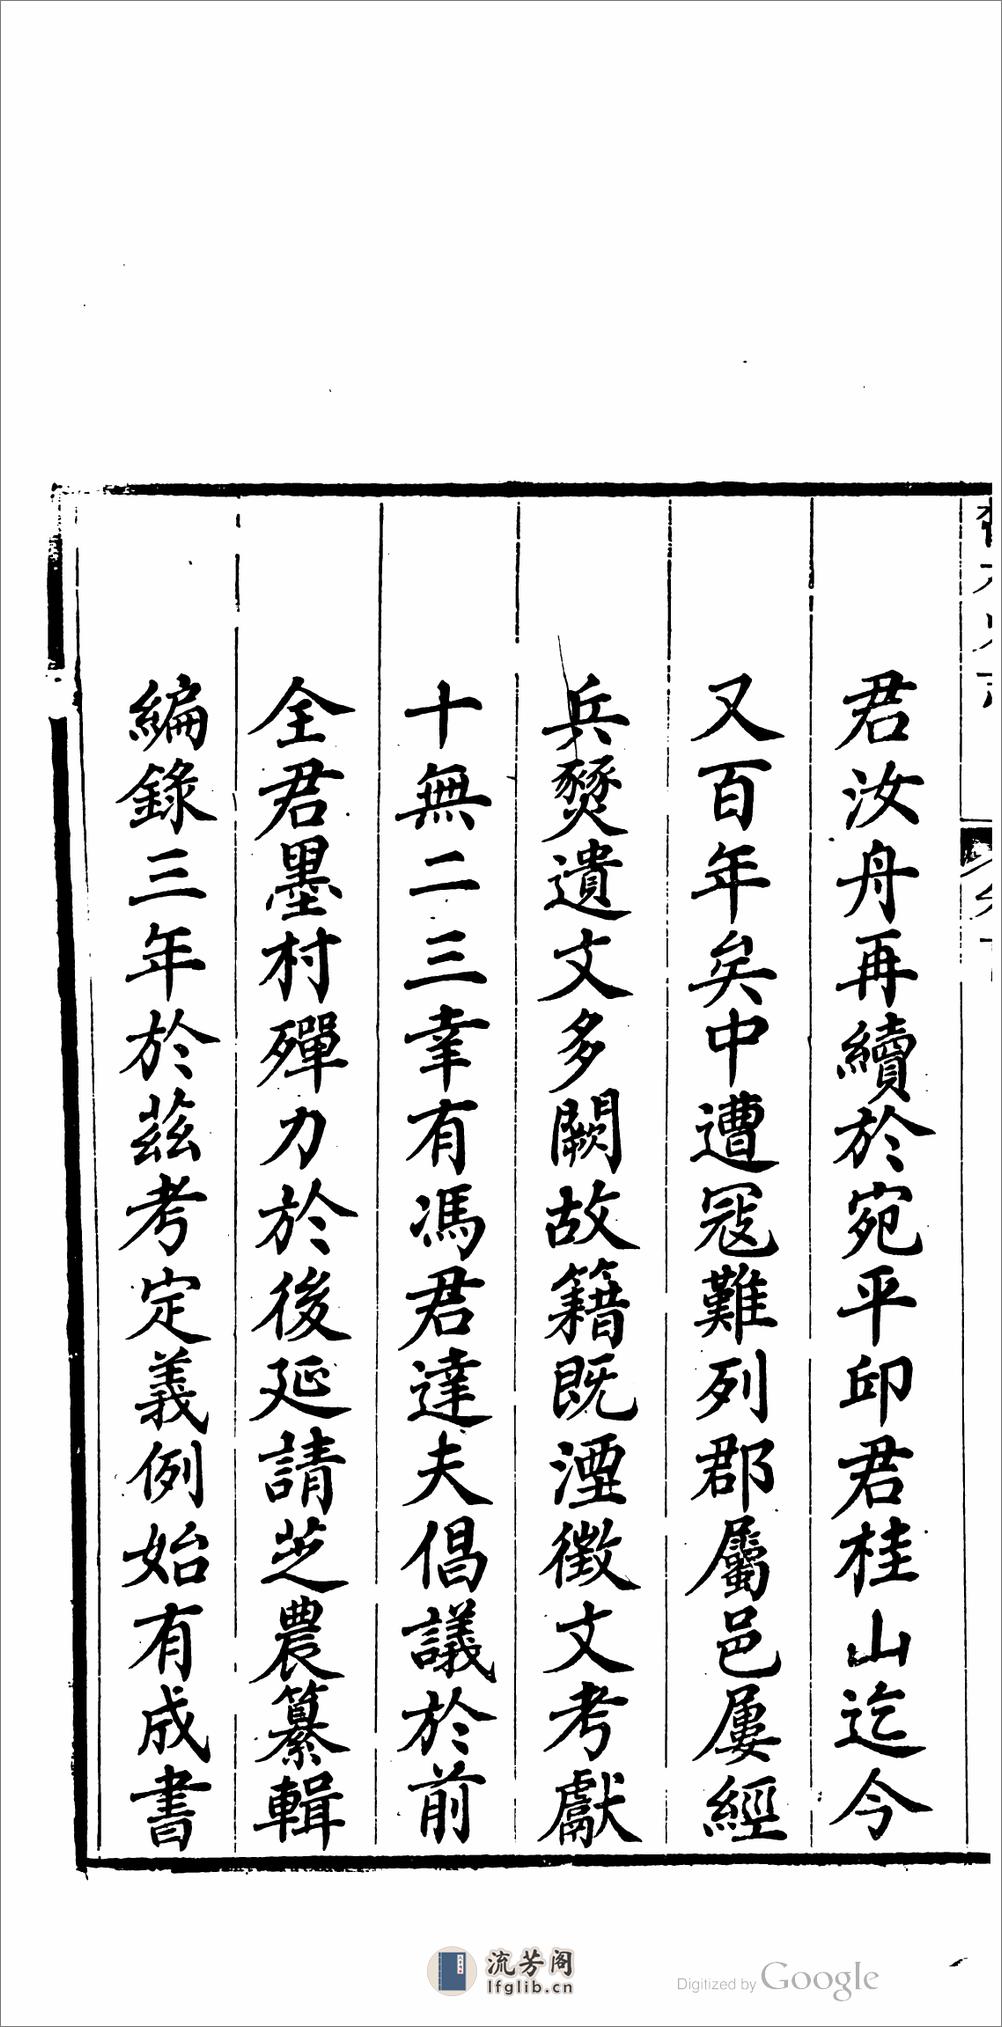 君汝舟再續於宛平邱君桂山迄今
又百年矣中遭寇難列郡屬邑屢經
兵燹遺文多闕故籍既湮徵文考獻
十無二三幸有馮君達夫倡議於前
全君墨村殫力於後延請芝農纂輯
編錄三年於茲考定義例始有成書
流芳阁
lfglib.cn
Digitized by Google